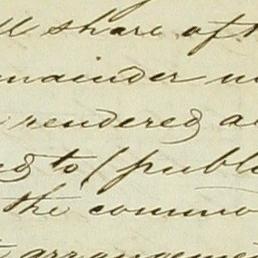 ll share of t
mainder
rendered a
ed to ( publi
the commo
arrangeme